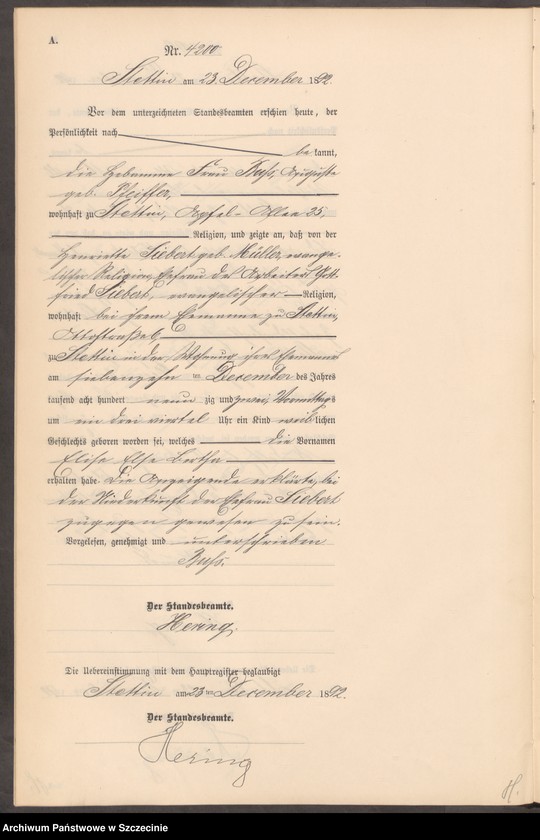 A.
Nr. 4200
Stettin am 23. December 1892.
Vor dem unterzeichneten Standesbeamten erschien heute, der
Persönlichkeit nach
bekannt,
die Hebamme Frau Buss, Auguste
geb. Pfeiffer,
wohnhaft zu Stettin, Apfel-Allee 25,
Religion, und zeigte an, daß von der
Henriette Siebert geb. Müller, evange-
lischer Religion, Ehefrau des Arbeiters Gott-
fried Siebert, evangelischer Religion,
wohnhaft bei ihrem Ehemanne zu Stettin,
Ottostraße 6,
zu Stettin in der Wohnung ihres Ehemannes
am siebenzehn ten December des Jahres
tausend acht hundert neun zig und zwei, Vormittags
um ein drei viertel Uhr ein Kind weiblichen
Geschlechts geboren worden sei, welches die Vornamen
Elise Else Bertha
erhalten habe. Die Anzeigende erklärte, bei
der Niederkunft der Ehefrau Siebert
zugegen gewesen zu sein.
Vorgelesen, genehmigt und unterschrieben
Buss.
Der Standesbeamte.
Hering.
Die Uebereinstimmung mit dem Hauptregister beglaubigt
Stettin am 23 ten December 1892.
Der Standesbeamte.
Hering
H.
Archiwum Państwowe w Szczecinie